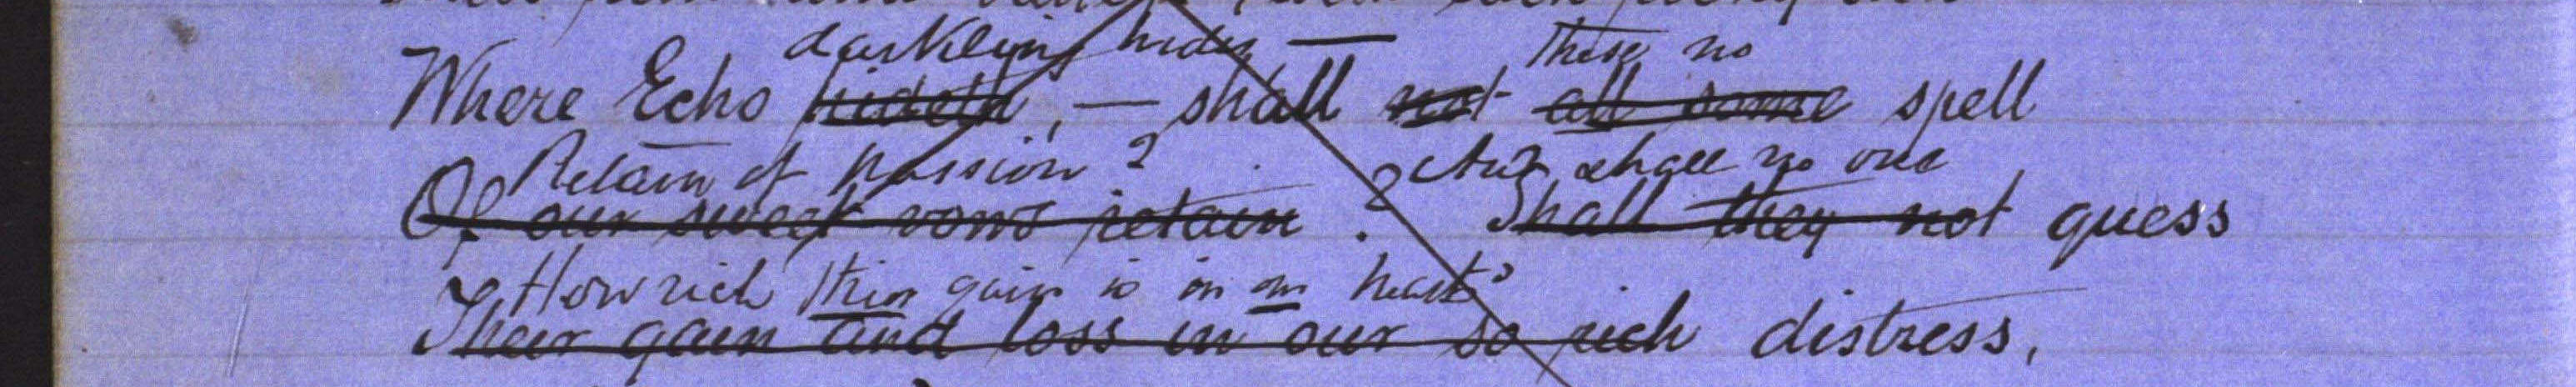 darkling hides — These no
Where Echo hideth, — shall not all some spell
Retain of passion? And shall no one
Of our sweet vows retain? Shall they not guess
How rich their gain is in our hearts'
Their gain and loss in our so rich distress,